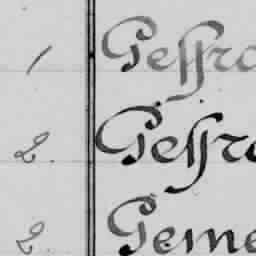 1 Gessro
2. Gessra
2. Geme